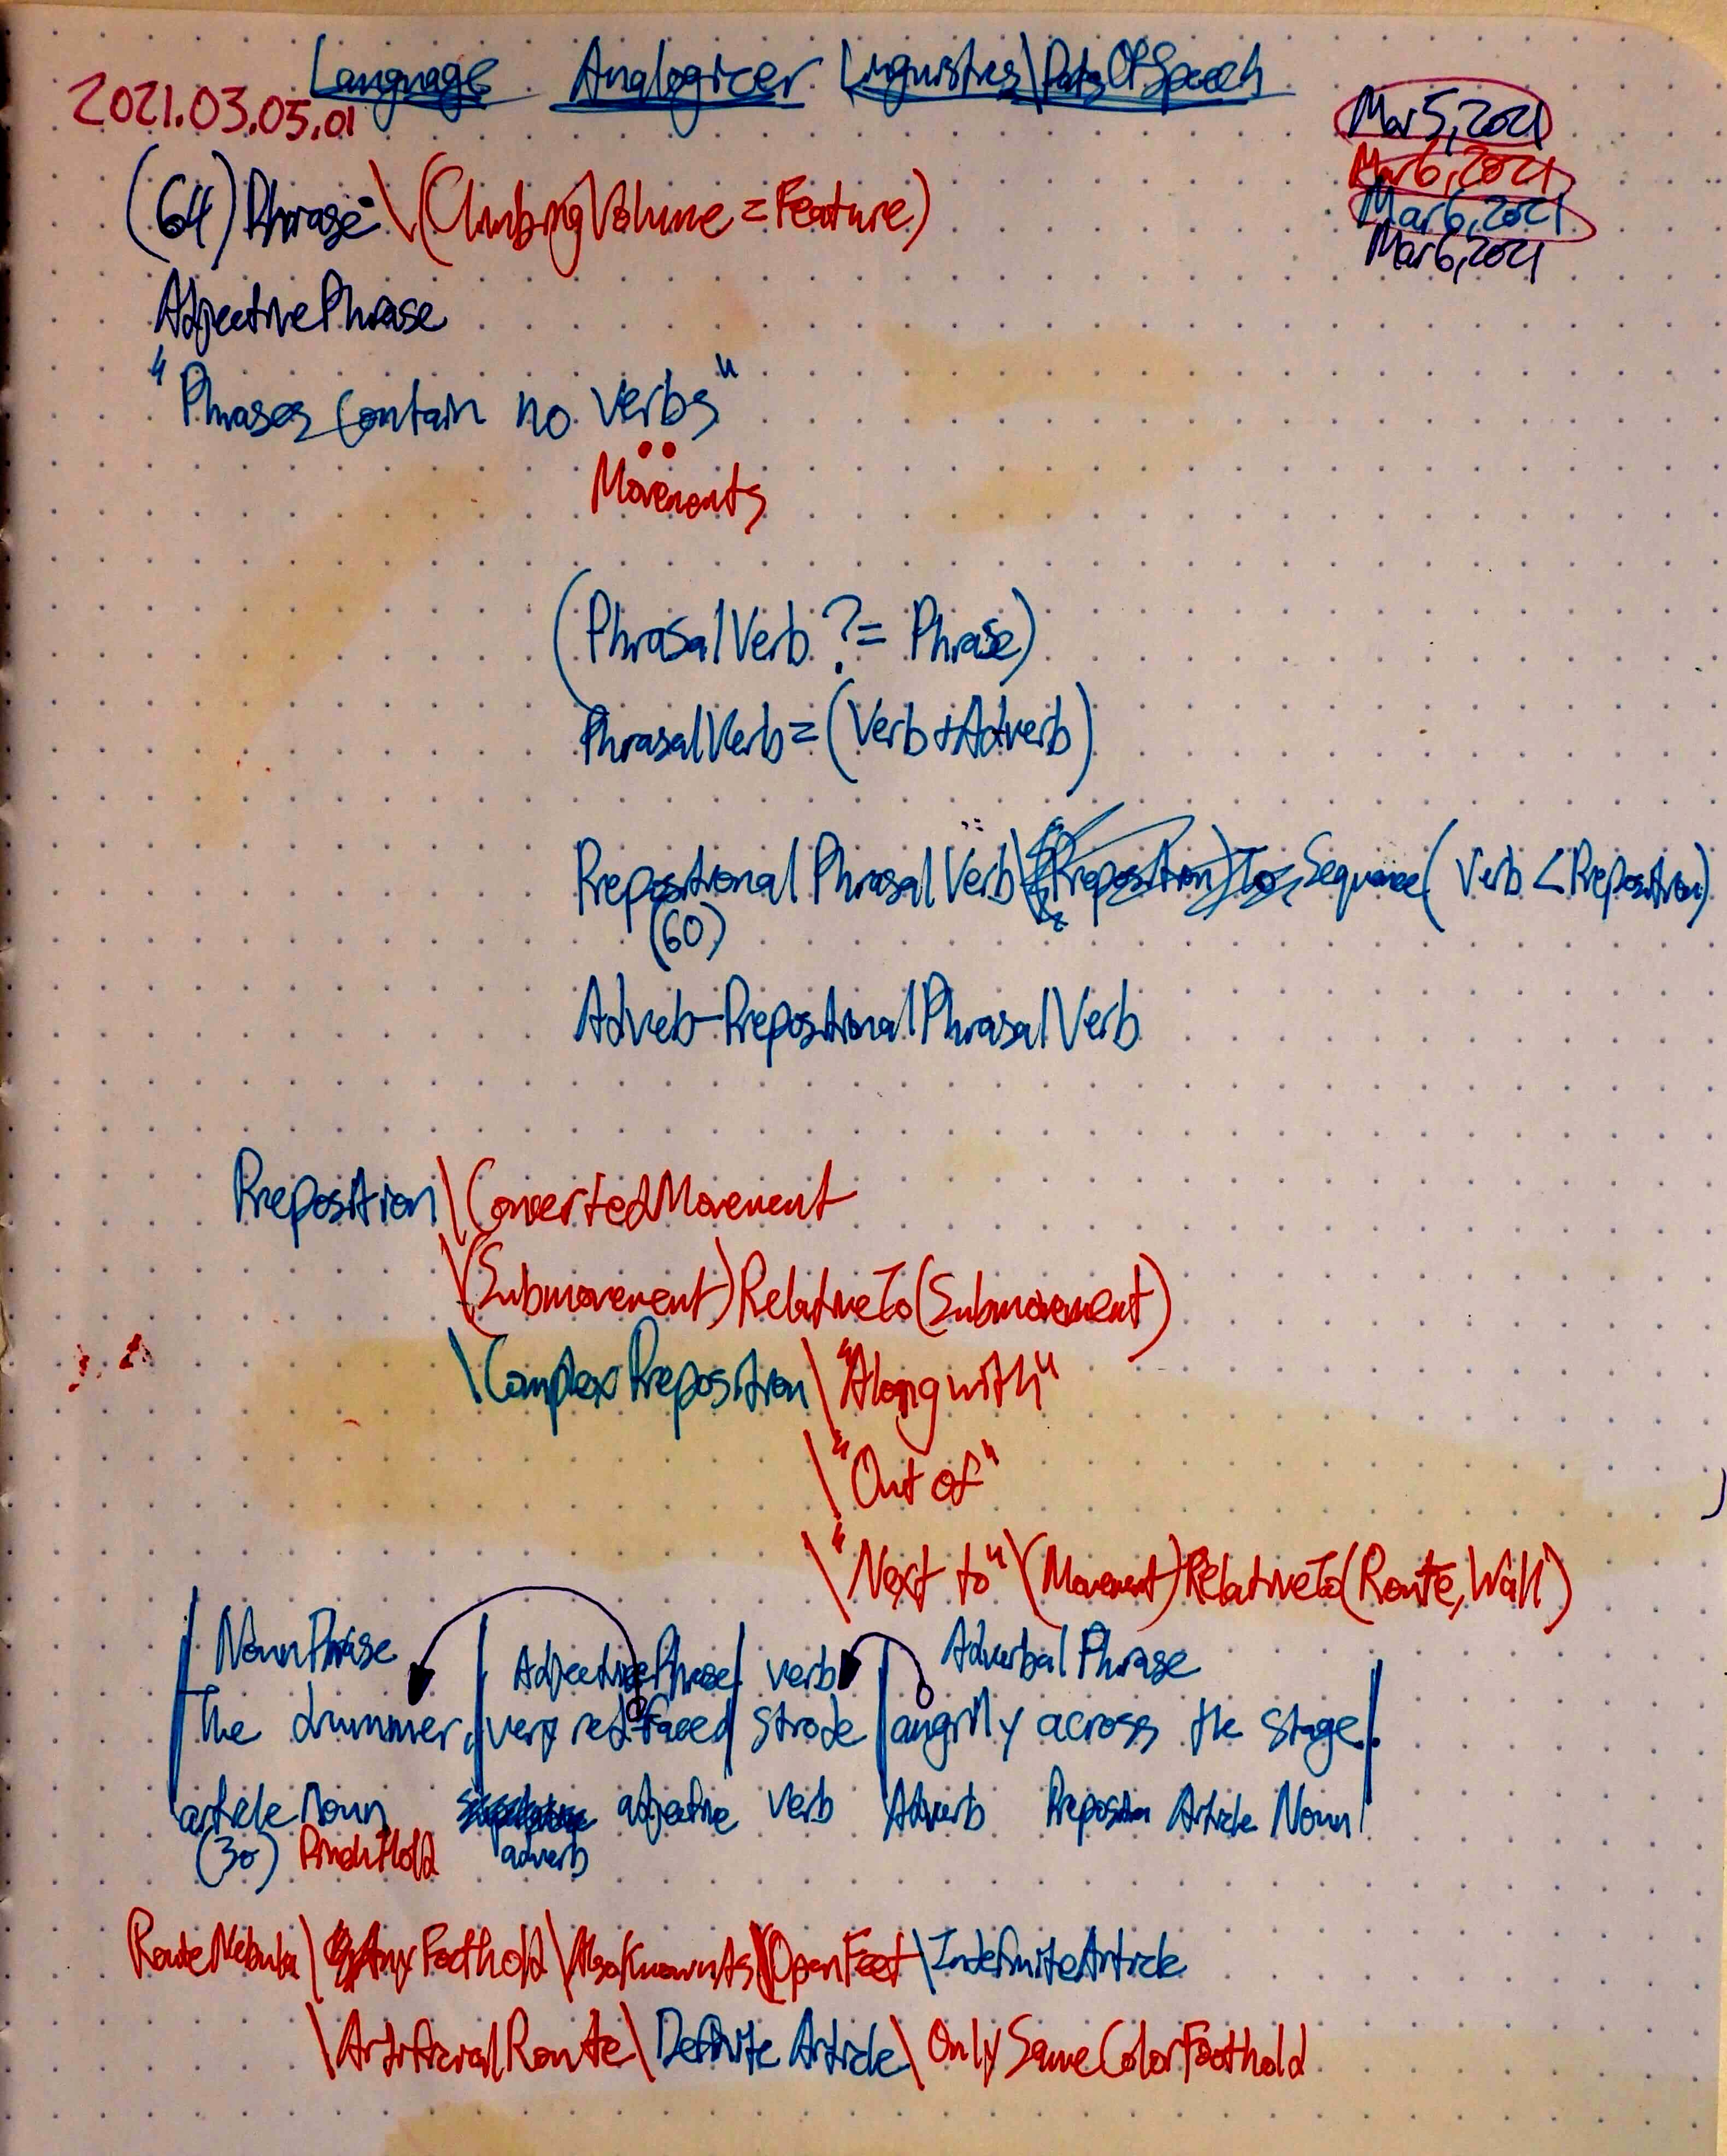 Language Analogizer Linguistics\PartsOfSpeech
2021.03.05.01
Mar 5, 2021
Mar 6, 2021
Mar 6, 2021
Mar 6, 2021
(64) Phrase \(ClimbingVolume = Feature)
AdjectivePhrase
"Phrases contain no verbs"
Movements
(PhrasalVerb ?= Phrase)
PhrasalVerb = (Verb + Adverb)
Prepositional Phrasal Verb\ Sequence( Verb < Preposition)
(60)
Adverb-PrepositionalPhrasalVerb
Preposition\ConvertedMovement
\(Submovement)RelativeTo(Submovement)
\ComplexPreposition\"Along with"
\"Out of"
\"Next to"\(Movement)RelativeTo(Route, Wall)
NounPhrase AdjectivePhrase verb Adverbal Phrase
The drummer, very red-faced strode angrily across the stage.
article Noun adverb adjective verb Adverb Preposition Article Noun
(30) PinchHold
RouteNebula\AnyFoothold\AlsoKnownAs\OpenFeet\IndefiniteArticle
\ArtificialRoute\Definite Article\OnlySameColorFoothold